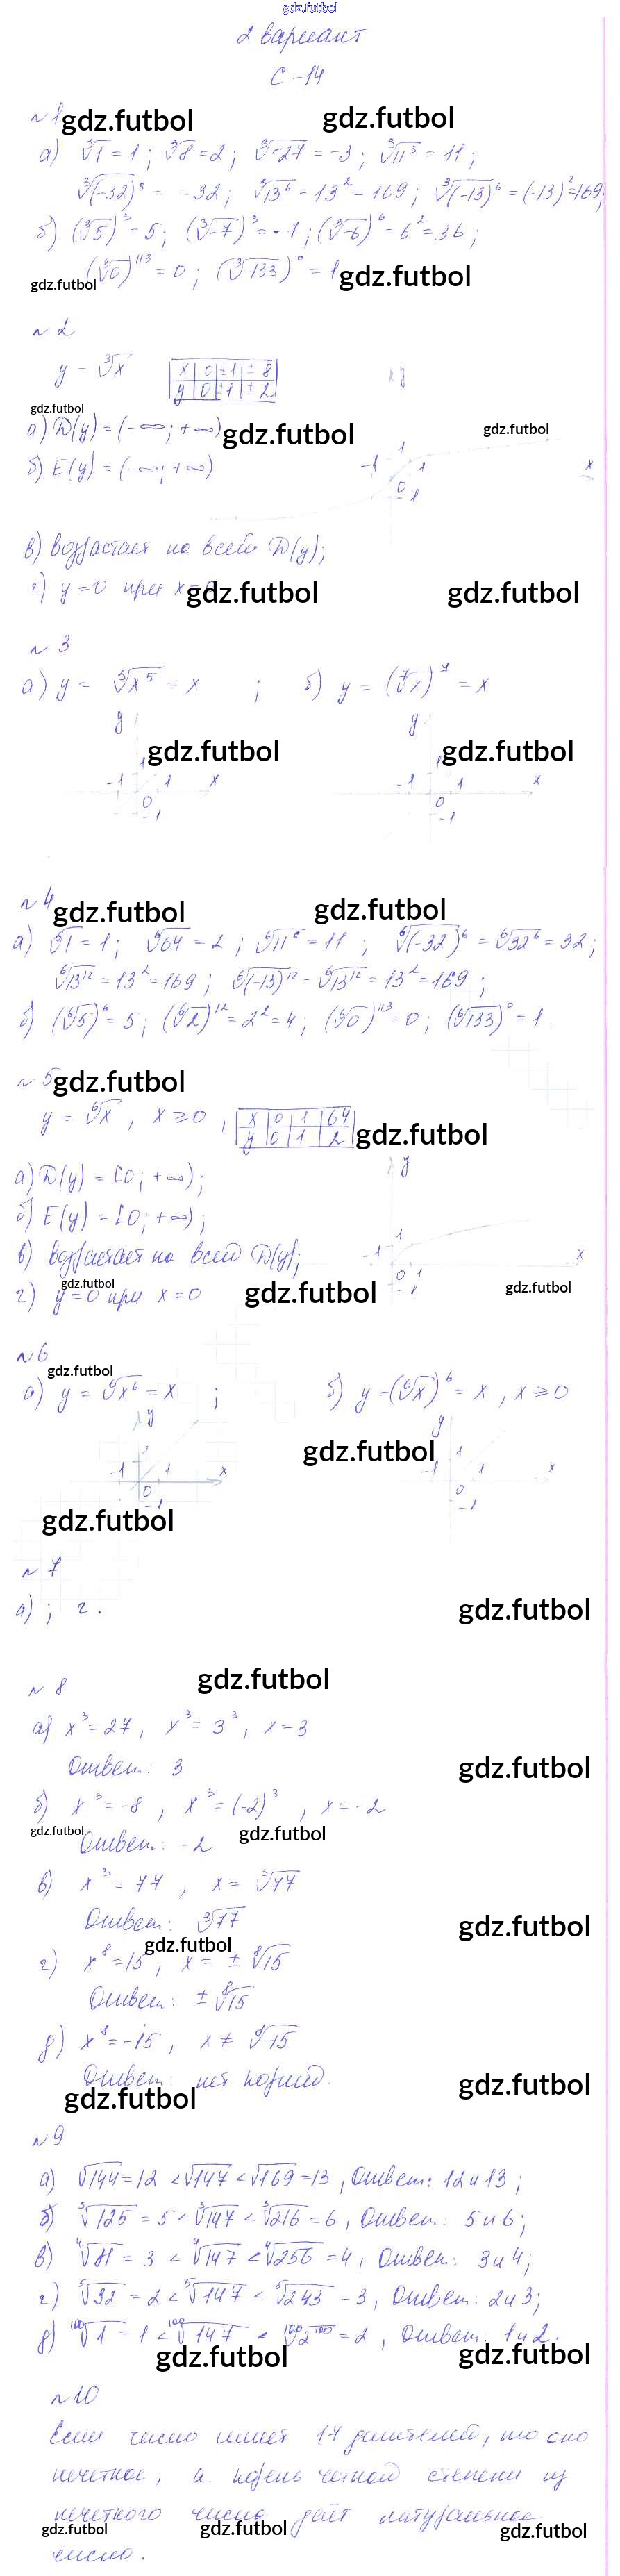 gdz.futbol
2 вариант
С-14
№1 gdz.futbol gdz.futbol
а) ∛1 = 1; ∛8 = 2; ∛-27 = -3; ∛11³ = 11;
∛(-32)³ = -32; ∛13⁶ = 13² = 169; ∛(-13)⁶ = (-13)² = 169;
б) (∛5)³ = 5; (∛-7)³ = -7; (∛-6)⁶ = 6² = 36;
gdz.futbol (∛0)¹¹³ = 0; (∛-133)⁰ = 1 gdz.futbol
№2
y = ∛x
x 0 ±1 ±8
y 0 ±1 ±2
y
gdz.futbol
а) D(y) = (-∞; +∞) gdz.futbol gdz.futbol
б) E(y) = (-∞; +∞)
-1 1 1 x
0 -1
в) возрастает на всей D(y);
г) y = 0 при x = gdz.futbol gdz.futbol
№3
а) y = ⁵√x⁵ = x ; б) y = (⁷√x)⁷ = x
y y
gdz.futbol gdz.futbol
-1 1 1 x -1 1 1 x
0 0
-1 -1
№4 gdz.futbol gdz.futbol
а) ⁶√1 = 1; ⁶√64 = 2; ⁶√11⁶ = 11; ⁶√(-32)⁶ = ⁶√32⁶ = 32;
⁶√13¹² = 13² = 169; ⁶√(-13)¹² = ⁶√13¹² = 13² = 169;
б) (⁶√5)⁶ = 5; (⁶√2)¹² = 2² = 4; (⁶√0)¹¹³ = 0; (⁶√133)⁰ = 1.
№5 gdz.futbol
y = ⁶√x, x ≥ 0,
x 0 1 64
y 0 1 2
gdz.futbol
y
а) D(y) = [0; +∞);
б) E(y) = [0; +∞);
в) возрастает на всей D(y);
-1 1 0 1 -1 x
gdz.futbol
г) y = 0 при x = 0 gdz.futbol gdz.futbol
№6
gdz.futbol
а) y = ⁶√x⁶ = x ; б) y = (⁶√x)⁶ = x, x ≥ 0
y y
gdz.futbol
-1 1 1 x -1 1 1 x
0 0
-1 -1
gdz.futbol
№7
а); г. gdz.futbol
№8 gdz.futbol
а) x³ = 27, x³ = 3³, x = 3
Ответ: 3 gdz.futbol
б) x³ = -8, x³ = (-2)³, x = -2
gdz.futbol Ответ: -2 gdz.futbol
в) x³ = 77, x = ∛77
Ответ: ∛77 gdz.futbol
gdz.futbol
г) x⁸ = 15, x = ±⁸√15
Ответ: ±⁸√15
д) x⁸ = -15, x ≠ ⁸√-15
Ответ: нет корней. gdz.futbol
gdz.futbol
№9
а) √144 = 12 < √147 < √169 = 13, Ответ: 12 и 13;
б) ∛125 = 5 < ∛147 < ∛216 = 6, Ответ: 5 и 6;
в) ⁴√81 = 3 < ⁴√147 < ⁴√256 = 4, Ответ: 3 и 4;
г) ⁵√32 = 2 < ⁵√147 < ⁵√243 = 3, Ответ: 2 и 3;
д) ¹⁰⁰√1 = 1 < ¹⁰⁰√147 < ¹⁰⁰√2¹⁰⁰ = 2, Ответ: 1 и 2.
gdz.futbol gdz.futbol
№10
Если число имеет 17 делителей, то оно
нечетное, а корень четной степени из
нечетного числа даёт натуральное
gdz.futbol gdz.futbol gdz.futbol
число.